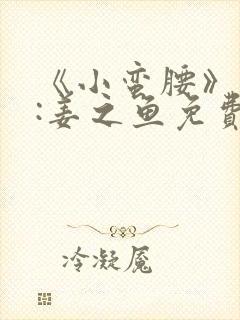 《小蛮腰》
:姜之鱼免費
冷凝魇